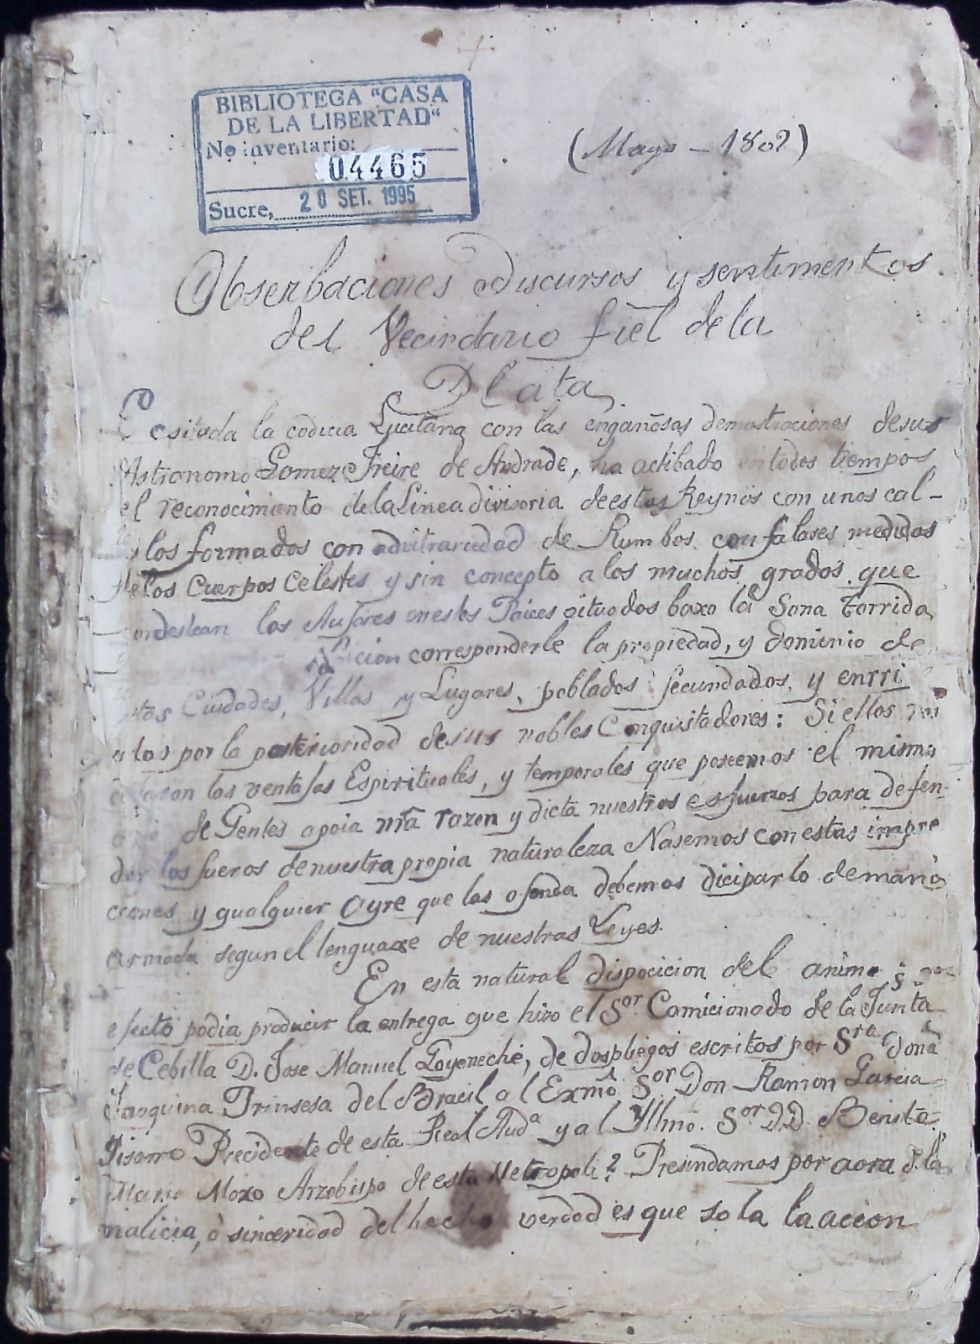 BIBLIOTEGA "CASA
DE LA LIBERTAD"
No inventario:
04465
Sucre, 20 SET. 1995
(Mayo - 1802)
Obserbaciones discursos y sentimentos
del Vecindario fiel de la
Plata
Ecsitada la codicia Lucitana con las engañosas demostraciones desus
Astronomo Gomez Freire de Andrade, ha actibado en todos tiempos
el reconocimiento de la Linea divisoria de estos Reynos con unos cal-
los formados con advitrariedad de Rumbos con falases medidas
de los cuerpos celestes y sin concepto a los muchos grados que
ordestean los Autores en estos Paices situados baxo la Sona torrida
corresponderle la propiedad, y dominio de
Cuidades, Villas y Lugares, poblados fecundados, y enrri
por la posterioridad desus nobles Conquistadores: Si ellos nos
las ventajas Espirituales, y temporales que poseemos el mismo
de Gentes apoia nrã razon y dicta nuestros esfuerzos para defen-
der los fueros denuestra propia naturaleza Nasemos con estas impre
ciones y qualquier ayre que las ofenda debemos diciparlo demano
armada segun el lenguaxe de nuestras Leyes.
En esta natural dispocicion del animo
efecto podia producir la entrega que hizo el Sor Comicionado de la Junta
de Cebilla D. Jose Manuel Goyeneche, de dos pliegos escritos por Sra Doña
Juaquina Prinsesa del Bracil al Exmo. Sor Don Ramon Garcia
Pisarro Precidente de esta Real Auda y al Yllmo. Sor D.D. Benito
Maria Moxo Arzobispo de esta Metropoli? Presindamos por aora d. la
malicia, ò sinceridad del hecho verdad es que sola la accion